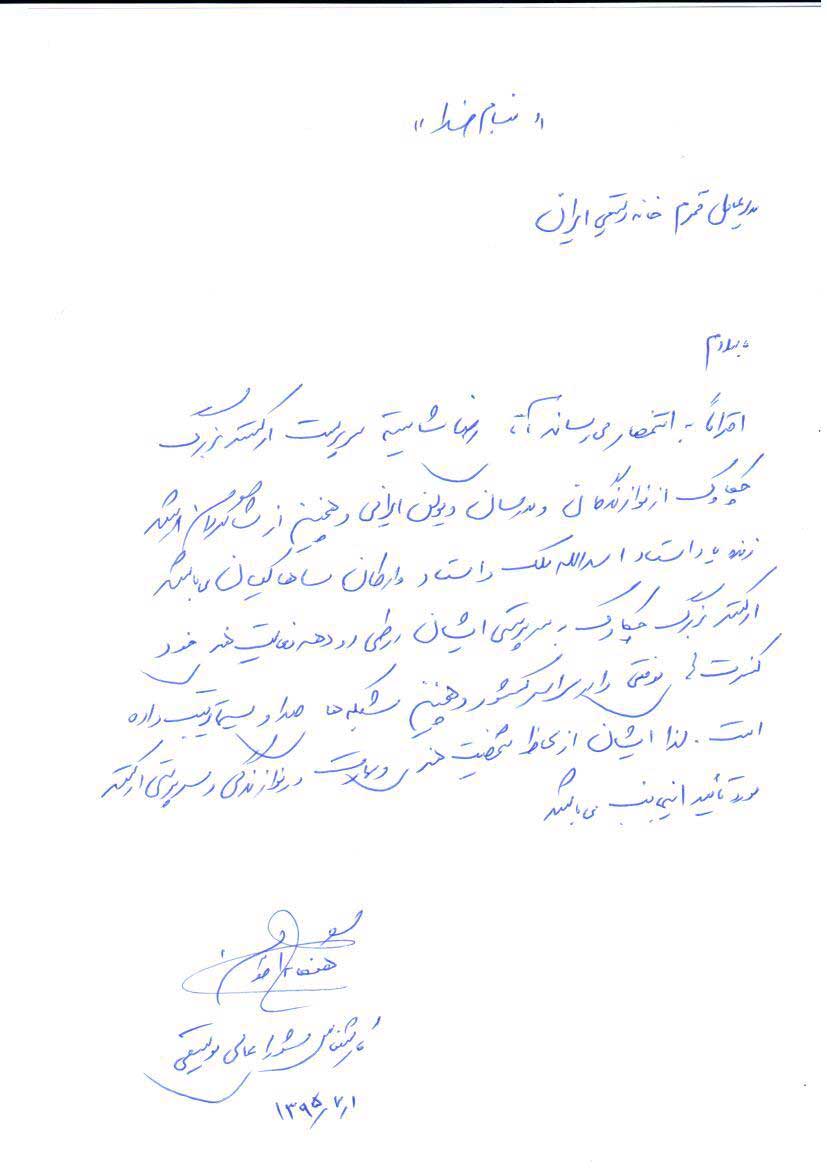 « بنام خدا »
مدیرعامل محترم خانه موسیقی ایران
با سلام
احتراماً به استحضار می‌رساند آقای رضا شایسته سرپرست ارکستر بزرگ
چکاوک از نوازندگان و مدرسان ویولن ایرانی و همچنین از شاگردان ارشد
زنده یاد استاد اسدالله ملک و استاد وارطان ساهاکیان می باشد
ارکستر بزرگ چکاوک به سرپرستی ایشان در طی دو دهه فعالیت هنری خود
کنسرت های موفقی را در سراسر کشور و همچنین شبکه ها صدا و سیما ترتیب داده
است . لذا ایشان از لحاظ شخصیت هنری و مهارت در نوازندگی و سرپرستی ارکستر
مورد تأیید اینجانب می باشد
کارشناس شورا عالی موسیقی
۱۳۹۵/۷/۱